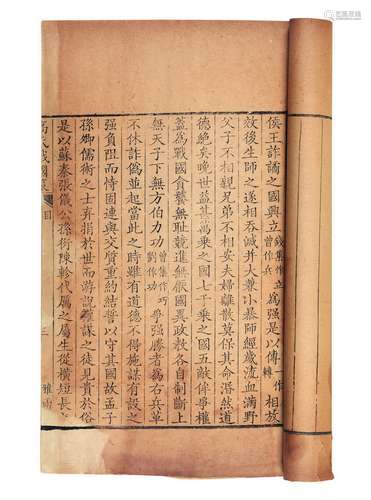 侯王詐譎之國興立錢集作立曾作兵為强是以傳一作轉相放
效後生師之遂相吞滅并大兼小暴師經歲流血滿野
父子不相親兄弟不相安夫婦離散莫保其命湣然道
德絕矣晚世益甚萬乘之國七千乘之國五敵侔爭權
葢為戰國貪饕無耻競進無厭國異政教各自制斷上
無天子下無方伯力功曾集作巧劉作功爭强勝者為右兵革
不休詐偽並起當此之時雖有道德不得施謀有設之
强負阻而恃固連與交質重約結誓以守其國故孟子
孫卿儒術之士弃捐於世而游說權謀之徒見貴於俗
是以蘇秦張儀公孫衍陳軫代厲之屬生從橫短長
高氏戰國策 目 三 雅雨